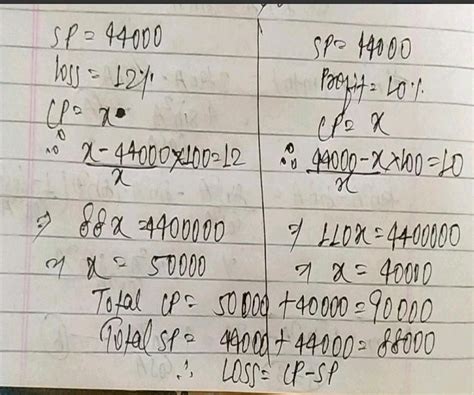 SP = 44000
loss = 12%
CP = x
∴ x - 44000 × 100 = 12
x
⇒ 88x = 4400000
⇒ x = 50000
SP = 44000
Profit = 10%
CP = x
∴ 44000 - x × 100 = 10
x
⇒ 110x = 4400000
⇒ x = 40000
Total CP = 50000 + 40000 = 90000
Total SP = 44000 + 44000 = 88000
∴ LOSS = CP - SP